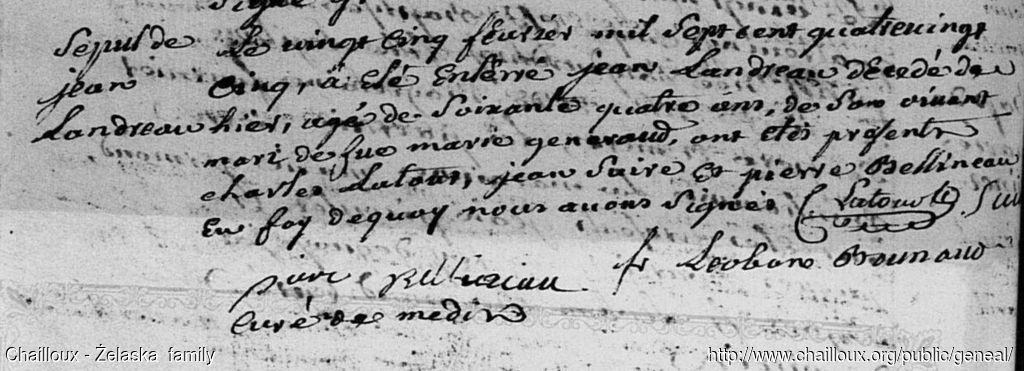 Sepul de
jean
Landreau
Le vingt cinq février mil sept cent quatrevingt
cinq, a eté enterré jean Landreau décédé de
hier, agé de soixante quatre ans, de son vivant
mari de fue marie generaud, ont etés présents
charles Latour, jean Suire et pierre Bellineau
en foy dequoy nous avons signés Latour
pierre Bellineau fr Leobon Bounaud
curé de medis
Chailloux - Żelaska family
http://www.chailloux.org/public/geneal/